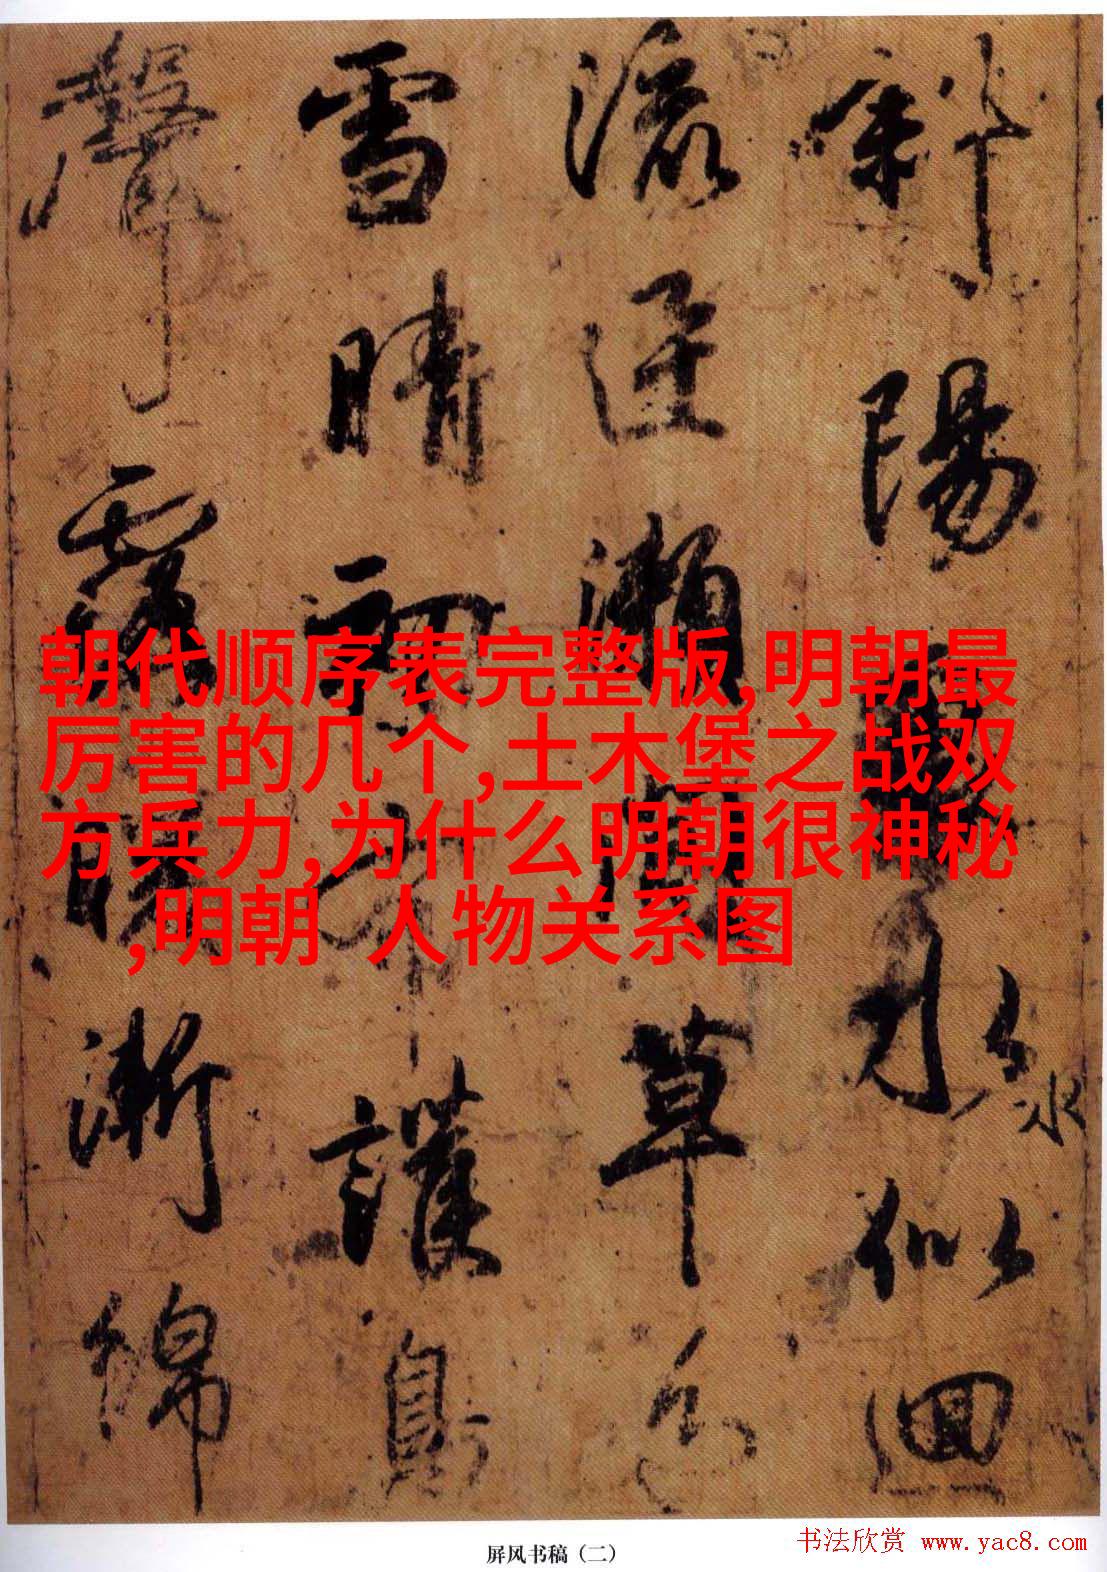 斜陽水似迴
氷
流瀬間草色
雪晴初布護鳥
聲露暖漸綿
朝代顺序表完整版,明朝最
厉害的几个,土木堡之战双
方兵力,为什么明朝很神秘
,明朝 人物关系图
屏风书稿（二）
书法欣赏 www.yac8.com